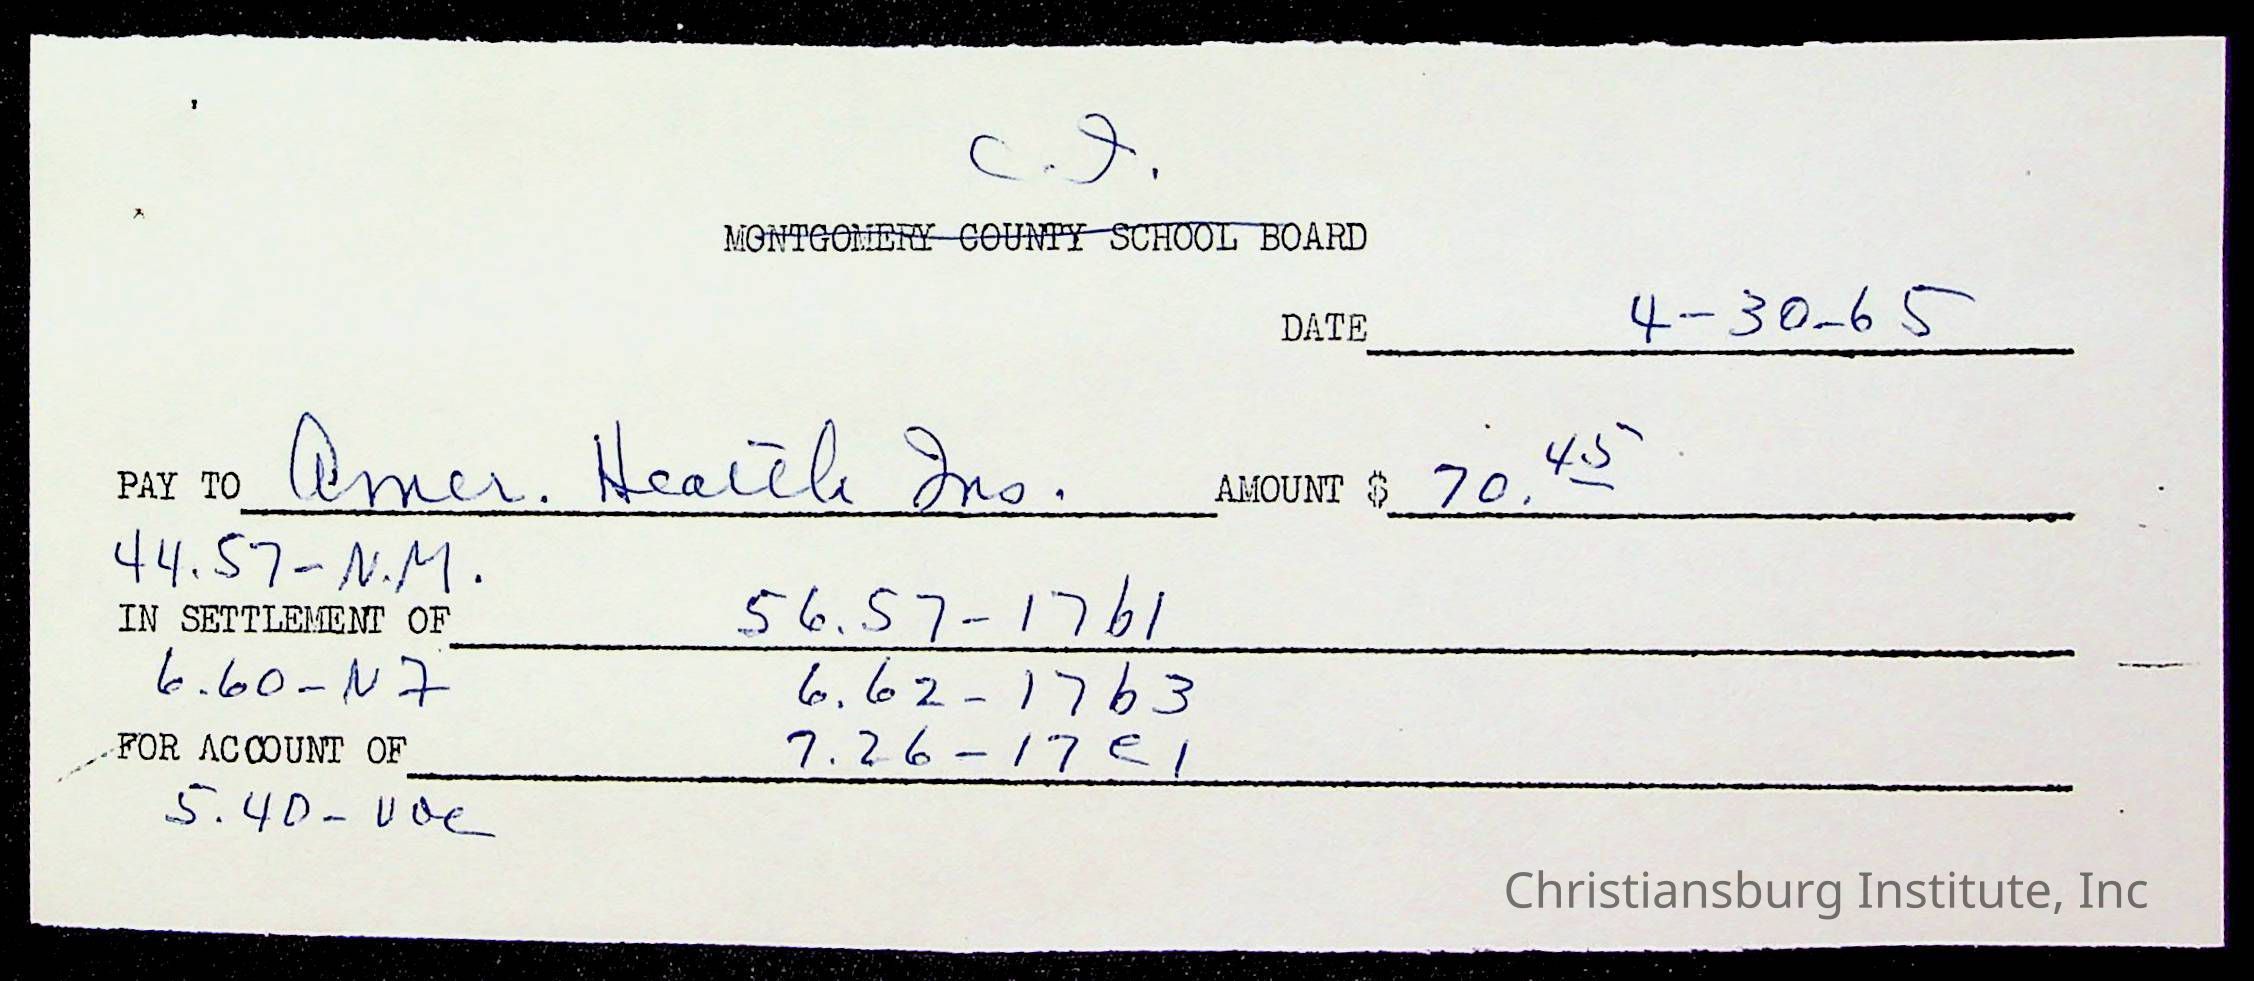 C.I.
MONTGOMERY COUNTY SCHOOL BOARD
DATE 4-30-65
PAY TO Amer. Health Ins. AMOUNT $ 70.45
44.57-N.M.
IN SETTLEMENT OF 56.57-17b1
6.60-NF 6.62-17b3
FOR ACCOUNT OF 7.26-17c1
5.40-Voc
Christiansburg Institute, Inc